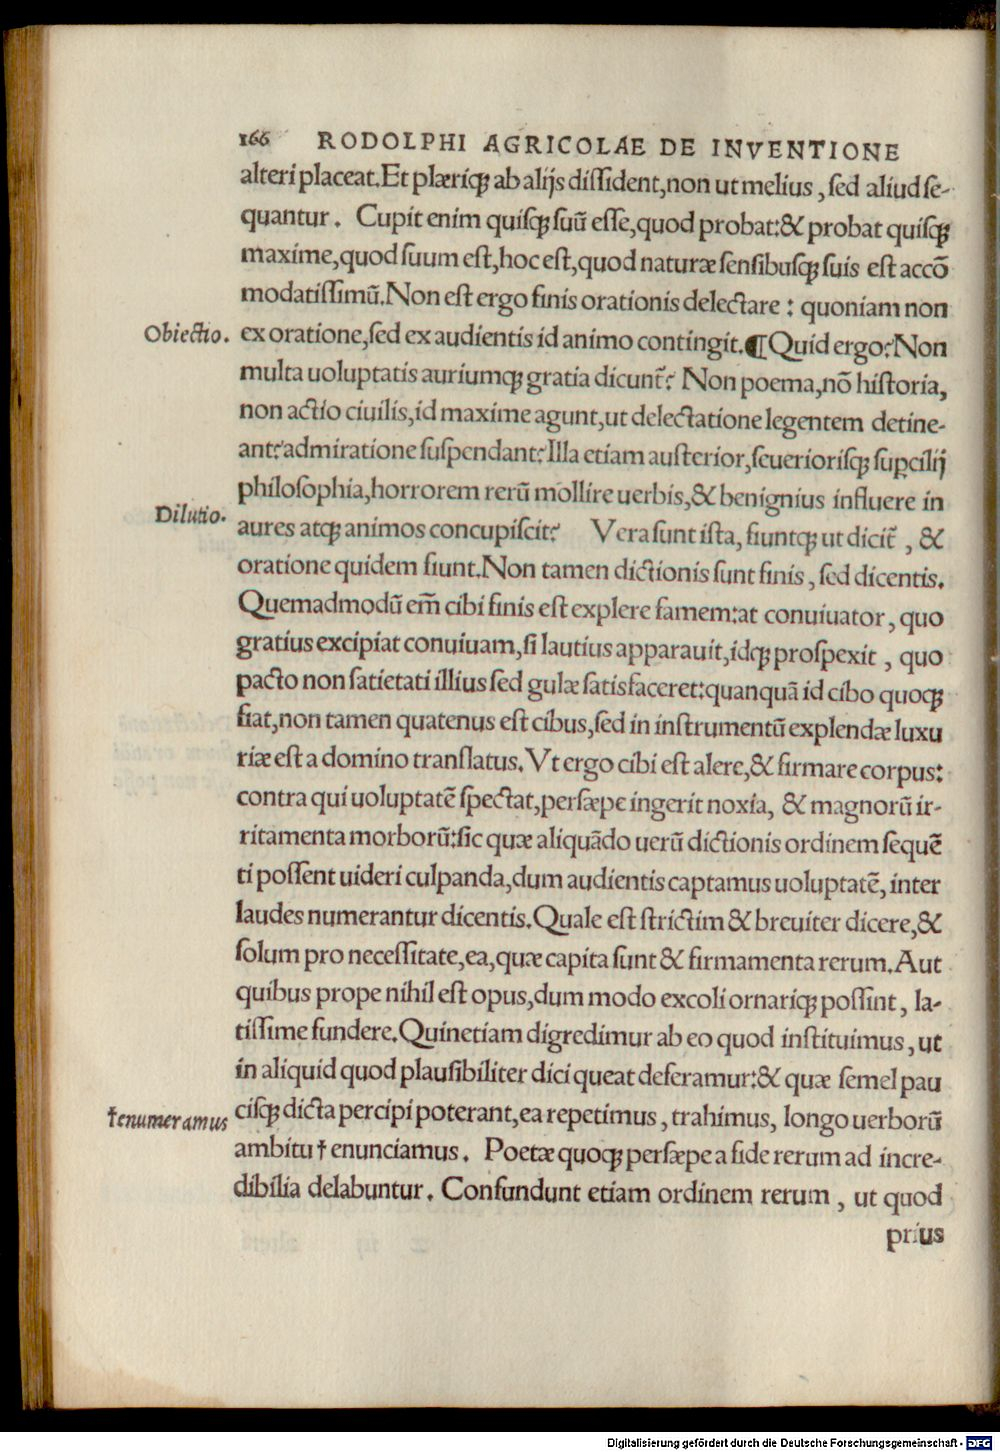 166 RODOLPHI AGRICOLAE DE INVENTIONE
alteri placeat. Et plæriq; ab alijs diſſident, non ut melius, ſed aliud ſe-
quantur. Cupit enim quiſq; ſuũ eſſe, quod probat: & probat quiſq;
maxime, quod ſuum eſt, hoc eſt, quod naturæ ſenſibuſq; ſuis eſt accõ
modatiſſimũ. Non eſt ergo finis orationis delectare: quoniam non
Obiectio. ex oratione, ſed ex audientis id animo contingit. ¶ Quid ergo? Non
multa uoluptatis auriumq; gratia dicunt̃? Non poema, nõ hiſtoria,
non actio ciuilis, id maxime agunt, ut delectatione legentem detine-
ant? admiratione ſuſpendant? Illa etiam auſterior, ſeuerioriſq; ſuꝑcilij
philoſophia, horrorem rerũ mollire uerbis, & benignius influere in
Dilutio. aures atq; animos concupiſcit? Vera ſunt iſta, fiuntq; ut dicit̃, &
oratione quidem fiunt. Non tamen dictionis ſunt finis, ſed dicentis.
Quemadmodũ em̃ cibi finis eſt explere famem: at conuiuator, quo
gratius excipiat conuiuam, ſi lautius apparauit, idq; proſpexit, quo
pacto non ſatietati illius ſed gulæ ſatisfaceret: quanquã id cibo quoq;
fiat, non tamen quatenus eſt cibus, ſed in inſtrumentũ explendæ luxu
riæ eſt a domino tranſlatus. Vt ergo cibi eſt alere, & firmare corpus:
contra qui uoluptatẽ ſpectat, perſæpe ingerit noxia, & magnorũ ir-
ritamenta morborũ: ſic quæ aliquãdo uerũ dictionis ordinem ſequẽ
ti poſſent uideri culpanda, dum audientis captamus uoluptatẽ, inter
laudes numerantur dicentis. Quale eſt ſtrictim & breuiter dicere, &
ſolum pro neceſſitate, ea, quæ capita ſunt & firmamenta rerum. Aut
quibus prope nihil eſt opus, dum modo excoli ornariq; poſſint, la-
tiſſime fundere. Quinetiam digredimur ab eo quod inſtituimus, ut
in aliquid quod plauſibiliter dici queat deferamur: & quæ ſemel pau
†enumeramus ciſq; dicta percipi poterant, ea repetimus, trahimus, longo uerborũ
ambitu † enunciamus. Poetæ quoq; perſæpe a fide rerum ad incre-
dibilia delabuntur. Confundunt etiam ordinem rerum, ut quod
prius
Digitalisierung gefördert durch die Deutsche Forschungsgemeinschaft - DFG